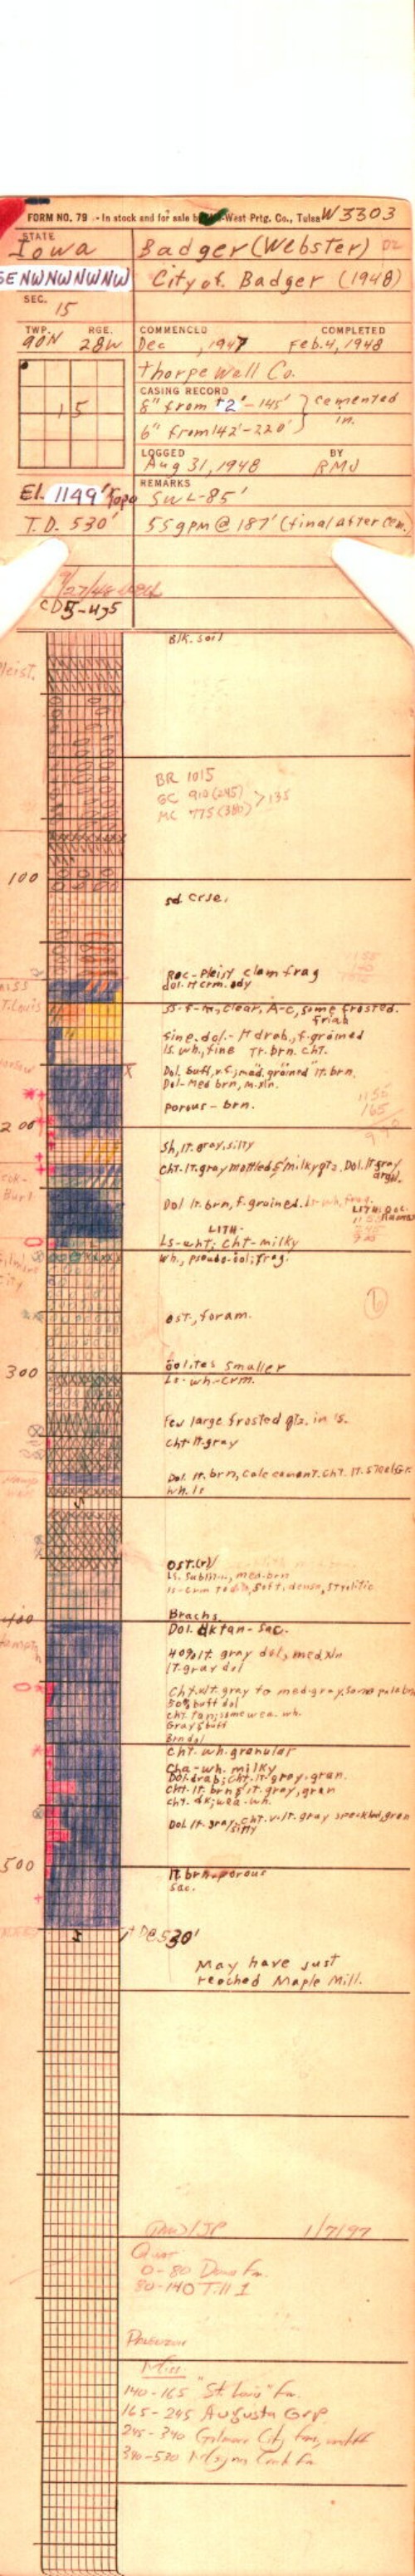 FORM NO. 79 - In stock and for sale by West Prtg. Co., Tulsa W3303
STATE
Iowa
Badger (Webster)
SENWNWNWNW
City of Badger (1948)
SEC.
15
TWP. RGE.
90N 28W
COMMENCED COMPLETED
Dec , 1947 Feb. 4, 1948
Thorpe Well Co.
CASING RECORD
8" from +2' - 145' } cemented
6" from 142' - 220' } in.
15
LOGGED BY
Aug 31, 1948 RMJ
REMARKS
El. 1149' Topo
SWL-85'
T.D. 530'
55gpm @ 187' (final after cem.)
CD5-475
Blk. soil
Pleist.
BR 1015
GC 910 (245)
MC 775 (380) > 135
100
sd. crse.
Rec-Pleist clam frag
dol. lt crm. sdy
ss-f-m, clear, A-C, some frosted.
friab
fine dol.- lt drab, f-grained
ls. wh., fine Tr. brn. cht.
Dol. buff, v.f., med. grained lt. brn.
Dol-med brn, m.xln.
X
porous - brn.
1155
165
990
200
Sh, lt. gray, silty
Cht-lt. gray mottled & milky qtz. Dol. lt gray
argil.
Dol lt. brn, f-grained. ls-wh. frag.
LITH-
Ls-wht; cht-milky
wh., pseudo-ool; frag.
Gilmore
City
ost., foram.
300
oolites smaller
Ls-wh-crm.
Few large frosted qtz. in ls.
cht-lt. gray
wh. ls
Ost. (r)
Ls. Sublith., med-brn
Brachs.
400
Dol. dk tan - sac.
40% lt. gray dol, med xln
lt. gray dol
50% buff dol
cht tan; some wea. wh.
Gray & buff
Brn dol
cht. wh. granular
Cha-wh. milky
Dol. drab; cht-lt. gray, gran.
cht-lt. brn & lt. gray, gran
cht. dk; wea-wh.
Dol lt. gray, cht. v. lt. gray speckled, gran
silty
500
lt brn-porous
sac.
TD @ 530'
May have just
reached Maple Mill.
1/7/97
Quat
80-140 Till 1
Miss.
140-165 "St. Louis" Fm.
165-245 Augusta Grp.
245-340 Gilmore City Fm,